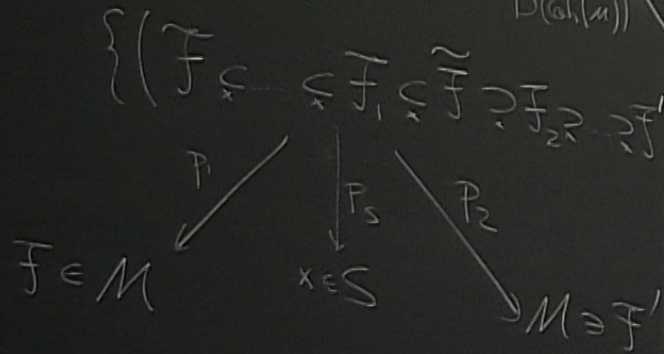 D(Coh(M))
{( F ⊊ₓ ... ⊊ₓ F₁ ⊊ₓ F̃ ⊋ F₂ ⊋ₓ ... ⊋ₓ F'
P₁ P_S P₂
F ∈ M x ∈ S M ∋ F'